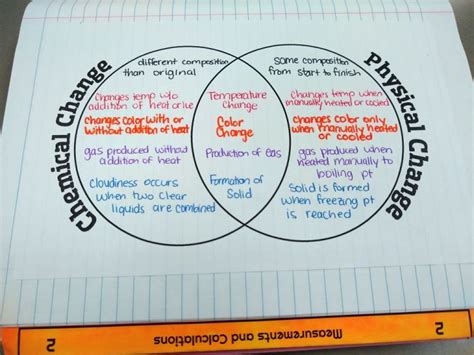 Chemical Change
different composition
than original
Changes temp w/o
addition of heat or ice
changes color with or
without addition of heat
gas produced without
addition of heat
Cloudiness occurs
when two clear
liquids are combined
Temperature
Change
Color
Change
Production of Gas
Formation of
Solid
Physical Change
Some composition
from start to finish
Changes temp when
manually heated or cooled
changes color only
when manually heated
or cooled
gas produced when
heated manually to
boiling pt
Solid is formed
when freezing pt
is reached
2
Measurements and Calculations
2